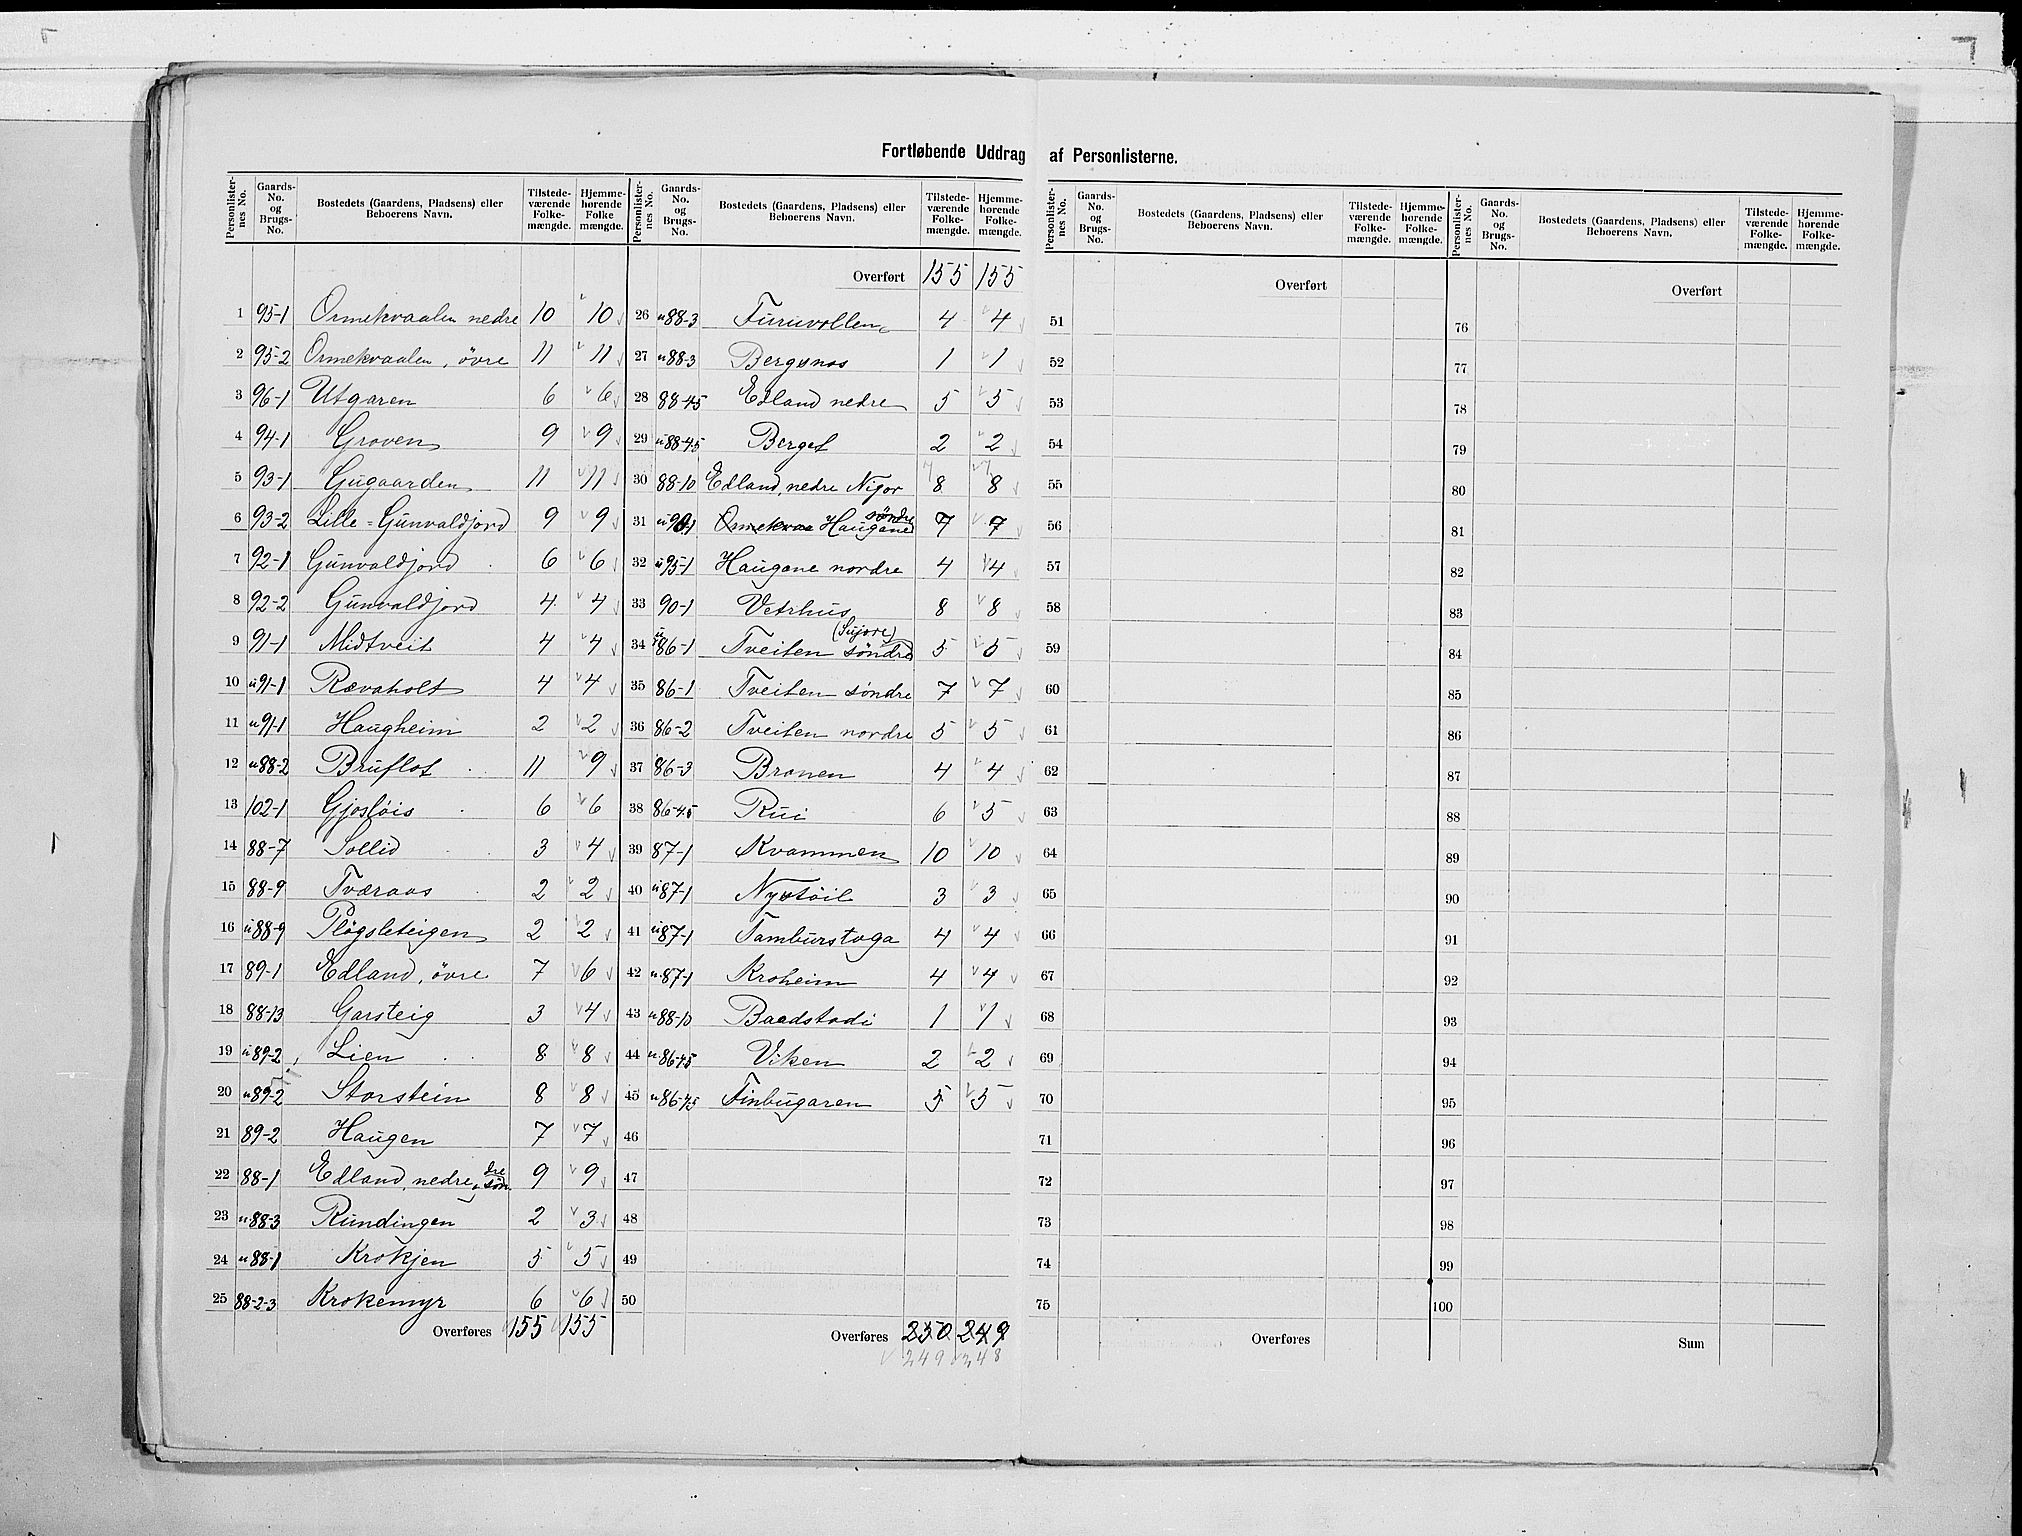 Fortløbende Uddrag af Personlisterne.
Personlisternes No. Gaards-No. og Brugs-No. Bostedets (Gaardens, Pladsens) eller Beboerens Navn. Tilstedeværende Folkemængde. Hjemmehørende Folkemængde.
1 95-1 Ormekvaalen nedre 10 10
2 95-2 Ormekvaalen, övre 11 11
3 96-1 Utgaren 6 6
4 94-1 Groven 9 9
5 93-1 Gugaarden 11 11
6 93-2 Lille-Gunvaldjord 9 9
7 92-1 Gunvaldjord 6 6
8 92-2 Gunvaldjord 4 4
9 91-1 Midtveit 4 4
10 u91-1 Rævaholt 4 4
11 u91-1 Haugheim 2 2
12 u88-2 Bruflot 11 9
13 102-1 Gjoslöis 6 6
14 88-7 Sollid 3 4
15 88-9 Tværaas 2 2
16 u88-9 Plögsleteigen 2 2
17 89-1 Edland, övre 7 6
18 88-13 Garsteig 3 4
19 u89-2 Lien 8 8
20 u89-2 Storstein 8 8
21 89-2 Haugen 7 7
22 88-1 Edland, nedre, söndre 9 9
23 u88-3 Rundingen 2 3
24 u88-1 Krokjen 5 5
25 88-2-3 Krokemyr 6 6
Overføres 155 155
Personlisternes No. Gaards-No. og Brugs-No. Bostedets (Gaardens, Pladsens) eller Beboerens Navn. Tilstedeværende Folkemængde. Hjemmehørende Folkemængde.
Overført 155 155
26 u88-3 Furuvollen 4 4
27 u88-3 Bergsnos 1 1
28 88-45 Edland nedre 5 5
29 u88-45 Berget 2 2
30 88-10 Edland, nedre Nigor 8 8
7 7
31 u90-1 Ormekvaa Haugane söndre 7 7
32 u95-1 Haugane nordre 4 4
33 90-1 Vetrhus 8 8
34 u86-1 Tveiten söndre (Sujore) 5 5
35 86-1 Tveiten söndre 7 7
36 86-2 Tveiten nordre 5 5
37 86-3 Bronen 4 4
38 86-4.5 Rui 6 5
39 87-1 Kvammen 10 10
40 u87-1 Nystöil 3 3
41 u87-1 Tamburstoga 4 4
42 u87-1 Kroheim 4 4
43 u88-10 Baadstodi 1 1
44 u86-4.5 Viken 2 2
45 u86-4.5 Finbugaren 5 5
46
47
48
49
50
Overføres 250 249
249 248
Personlisternes No. Gaards-No. og Brugs-No. Bostedets (Gaardens, Pladsens) eller Beboerens Navn. Tilstedeværende Folkemængde. Hjemmehørende Folkemængde.
Overført
51
52
53
54
55
56
57
58
59
60
61
62
63
64
65
66
67
68
69
70
71
72
73
74
75
Overføres
Personlisternes No. Gaards-No. og Brugs-No. Bostedets (Gaardens, Pladsens) eller Beboerens Navn. Tilstedeværende Folkemængde. Hjemmehørende Folkemængde.
Overført
76
77
78
79
80
81
82
83
84
85
86
87
88
89
90
91
92
93
94
95
96
97
98
99
100
Sum